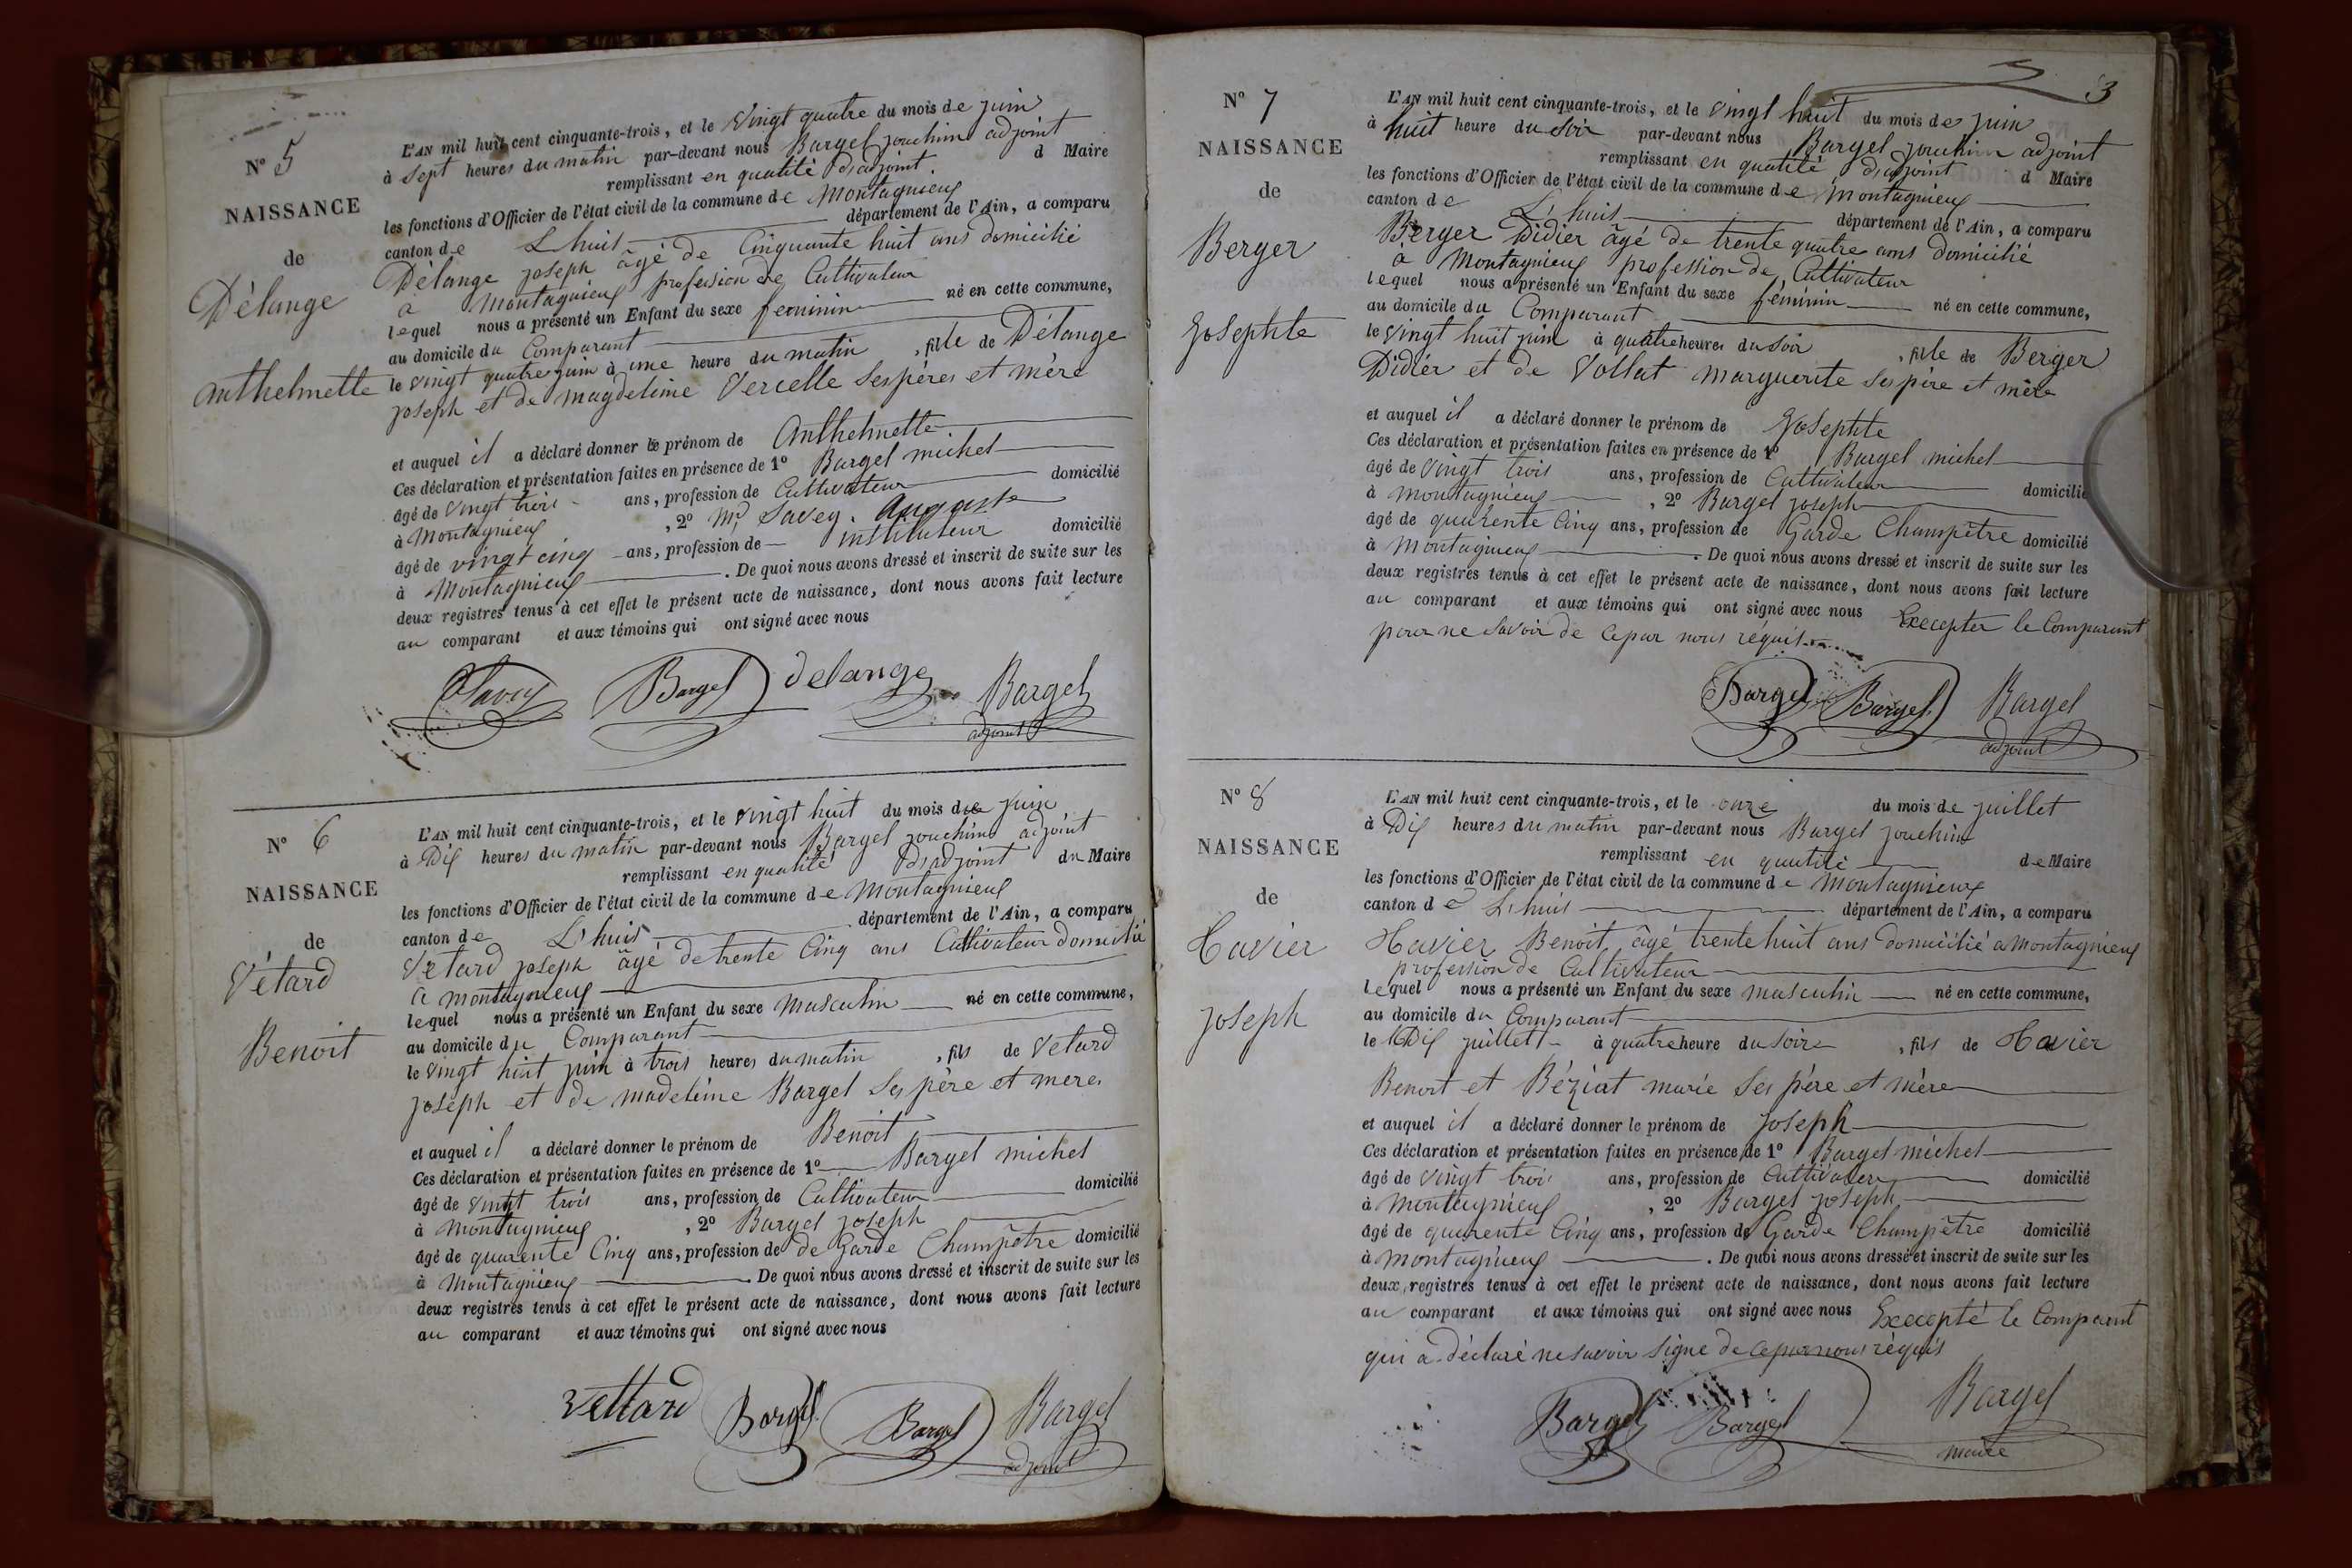 N° 5
NAISSANCE
de
Délange
Anthelmette
L'AN mil huit cent cinquante-trois, et le Vingt quatre du mois de juin
à sept heures du matin par-devant nous Bargel jouchim adjoint
remplissant en qualité d'adjoint d Maire
les fonctions d'Officier de l'état civil de la commune de Montagnieux
canton de L'huis département de l'Ain, a comparu
Délange joseph âgé de Cinquante huit ans domicilié
a Montagnieux profession de Cultivateur
lequel nous a présenté un Enfant du sexe feminin né en cette commune,
au domicile du Comparant
le vingt quatre juin à une heure du matin , fille de Délange
joseph et de magdeleine Vercelle ses pères et mère
et auquel il a déclaré donner le prénom de Anthelmette
Ces déclaration et présentation faites en présence de 1° Bargel michel
âgé de Vingt trois ans, profession de Cultivateur domicilié
à Montagnieux , 2° Mr Savey. Auguste
âgé de vingt cinq ans, profession de instituteur domicilié
à Montagnieux . De quoi nous avons dressé et inscrit de suite sur les
deux registres tenus à cet effet le présent acte de naissance, dont nous avons fait lecture
au comparant et aux témoins qui ont signé avec nous
Savey Bargel delange Bargel
adjoint
N° 6
NAISSANCE
de
Vétard
Benoit
L'AN mil huit cent cinquante-trois, et le vingt huit du mois de juin
à Dix heures du matin par-devant nous Bargel jouchim adjoint
remplissant en qualité d'adjoint du Maire
les fonctions d'Officier de l'état civil de la commune de Montagnieux
canton de L'huis département de l'Ain, a comparu
Vetard joseph âgé de trente Cinq ans Cultivateur domicilié
a montagnieux
lequel nous a présenté un Enfant du sexe Masculin né en cette commune,
au domicile du Comparant
le Vingt huit juin à trois heures du matin , fils de Vetard
joseph et de madeleine Bargel ses père et mere
et auquel il a déclaré donner le prénom de Benoit
Ces déclaration et présentation faites en présence de 1° Bargel michel
âgé de vingt trois ans, profession de Cultivateur domicilié
à Montagnieux , 2° Bargel joseph
âgé de quarente Cinq ans, profession de de Garde Champêtre domicilié
à Montagnieux . De quoi nous avons dressé et inscrit de suite sur les
deux registres tenus à cet effet le présent acte de naissance, dont nous avons fait lecture
au comparant et aux témoins qui ont signé avec nous
Vettard Bargel Bargel Bargel
adjoint
3
N° 7
NAISSANCE
de
Berger
Josephte
L'AN mil huit cent cinquante-trois, et le Vingt huit du mois de juin
à huit heure du soir par-devant nous Bargel jouchim adjoint
remplissant en qualité d'adjoint d Maire
les fonctions d'Officier de l'état civil de la commune de Montagnieux
canton de L'huis département de l'Ain, a comparu
Berger Didier âgé de trente quatre ans domicilié
a Montagnieux profession de Cultivateur
lequel nous a présenté un Enfant du sexe féminin né en cette commune,
au domicile du Comparant
le Vingt huit juin à quatre heures du soir , fille de Berger
Didier et de Vollat marguerite ses père et mère
et auquel il a déclaré donner le prénom de Josephte
Ces déclaration et présentation faites en présence de 1° Bargel michel
âgé de Vingt trois ans, profession de Cultivateur domicilié
à montagnieux , 2° Bargel joseph
âgé de quarente Cinq ans, profession de Garde Champêtre domicilié
à Montagnieux . De quoi nous avons dressé et inscrit de suite sur les
deux registres tenus à cet effet le présent acte de naissance, dont nous avons fait lecture
au comparant et aux témoins qui ont signé avec nous Excepter le Comparant
pour ne savoir de ce par nous réquis
Bargel Bargel Bargel
adjoint
N° 8
NAISSANCE
de
Havier
joseph
L'AN mil huit cent cinquante-trois, et le onze du mois de juillet
à Dix heures du matin par-devant nous Bargel jouchim
remplissant en qualité de Maire
les fonctions d'Officier de l'état civil de la commune de Montagnieux
canton de L'huis département de l'Ain, a comparu
Havier Benoit âgé trente huit ans domicilié a Montagnieux
profession de Cultivateur
lequel nous a présenté un Enfant du sexe masculin né en cette commune,
au domicile du Comparant
le Dix juillet à quatre heure du soir , fils de Havier
Benoit et Béziat marie ses père et mère
et auquel il a déclaré donner le prénom de joseph
Ces déclaration et présentation faites en présence de 1° Bargel michel
âgé de Vingt trois ans, profession de Cultivateur domicilié
à Montagnieux , 2° Bargel joseph
âgé de quarente Cinq ans, profession de Garde Champêtre domicilié
à Montagnieux . De quoi nous avons dressé et inscrit de suite sur les
deux registres tenus à cet effet le présent acte de naissance, dont nous avons fait lecture
au comparant et aux témoins qui ont signé avec nous Excepté le Comparant
qui a déclaré ne savoir signé de ce par nous réquis
Bargel Bargel Bargel
maire